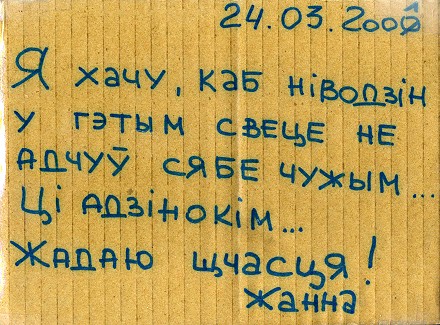 24.03.2006
Я хачу, каб ніводзін
у гэтым свеце не
адчуў сябе чужым...
Ці адзінокім...
Жадаю щчасця!
Жанна